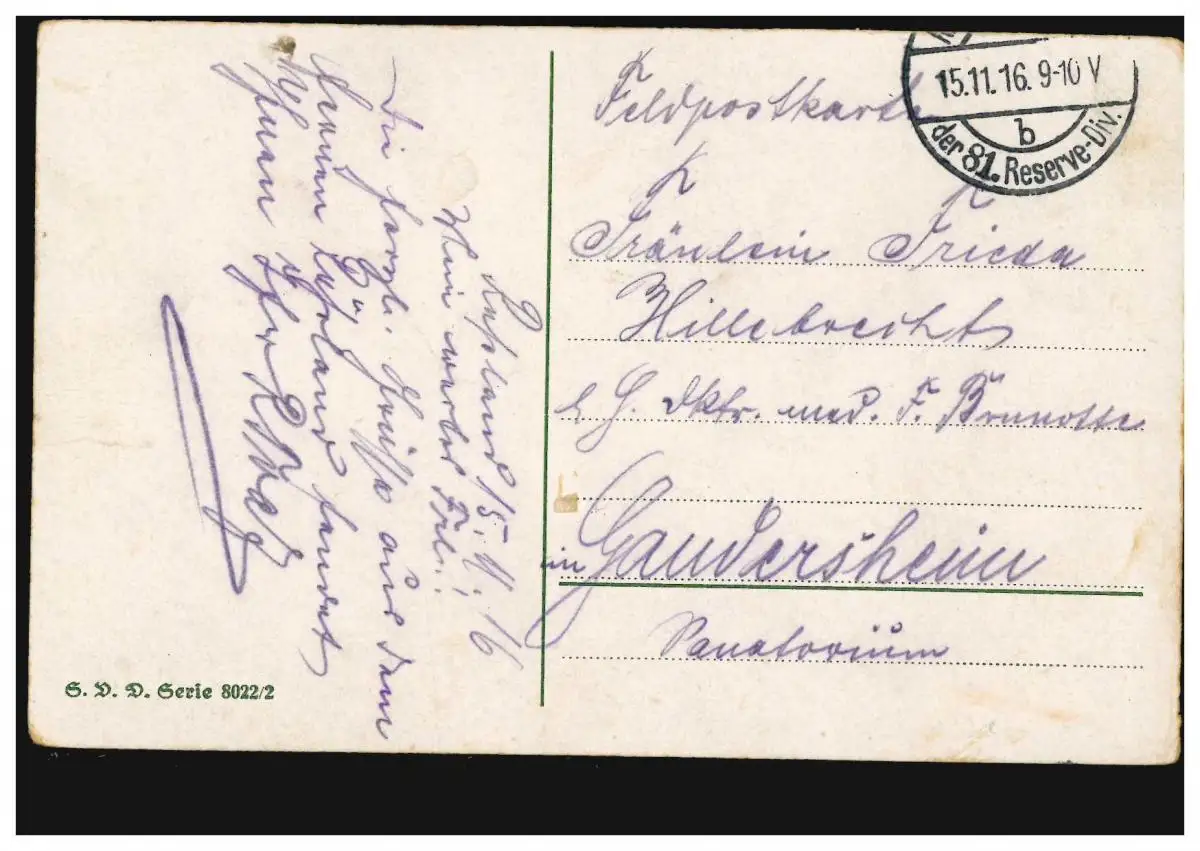 15.11.16. 9-10 V
b
der 81. Reserve-Div.
Feldpostkarte
Fräulein Frieda
Hillebrecht
Dktr. med. F. Brunotte
in Gandersheim
Sanatorium
Rußland 15.11.16
Mein wertes Frl.!
Die herzl. Grüße aus dem
Rußland sendet
Ihnen Ihr
S. V. D. Serie 8022/2